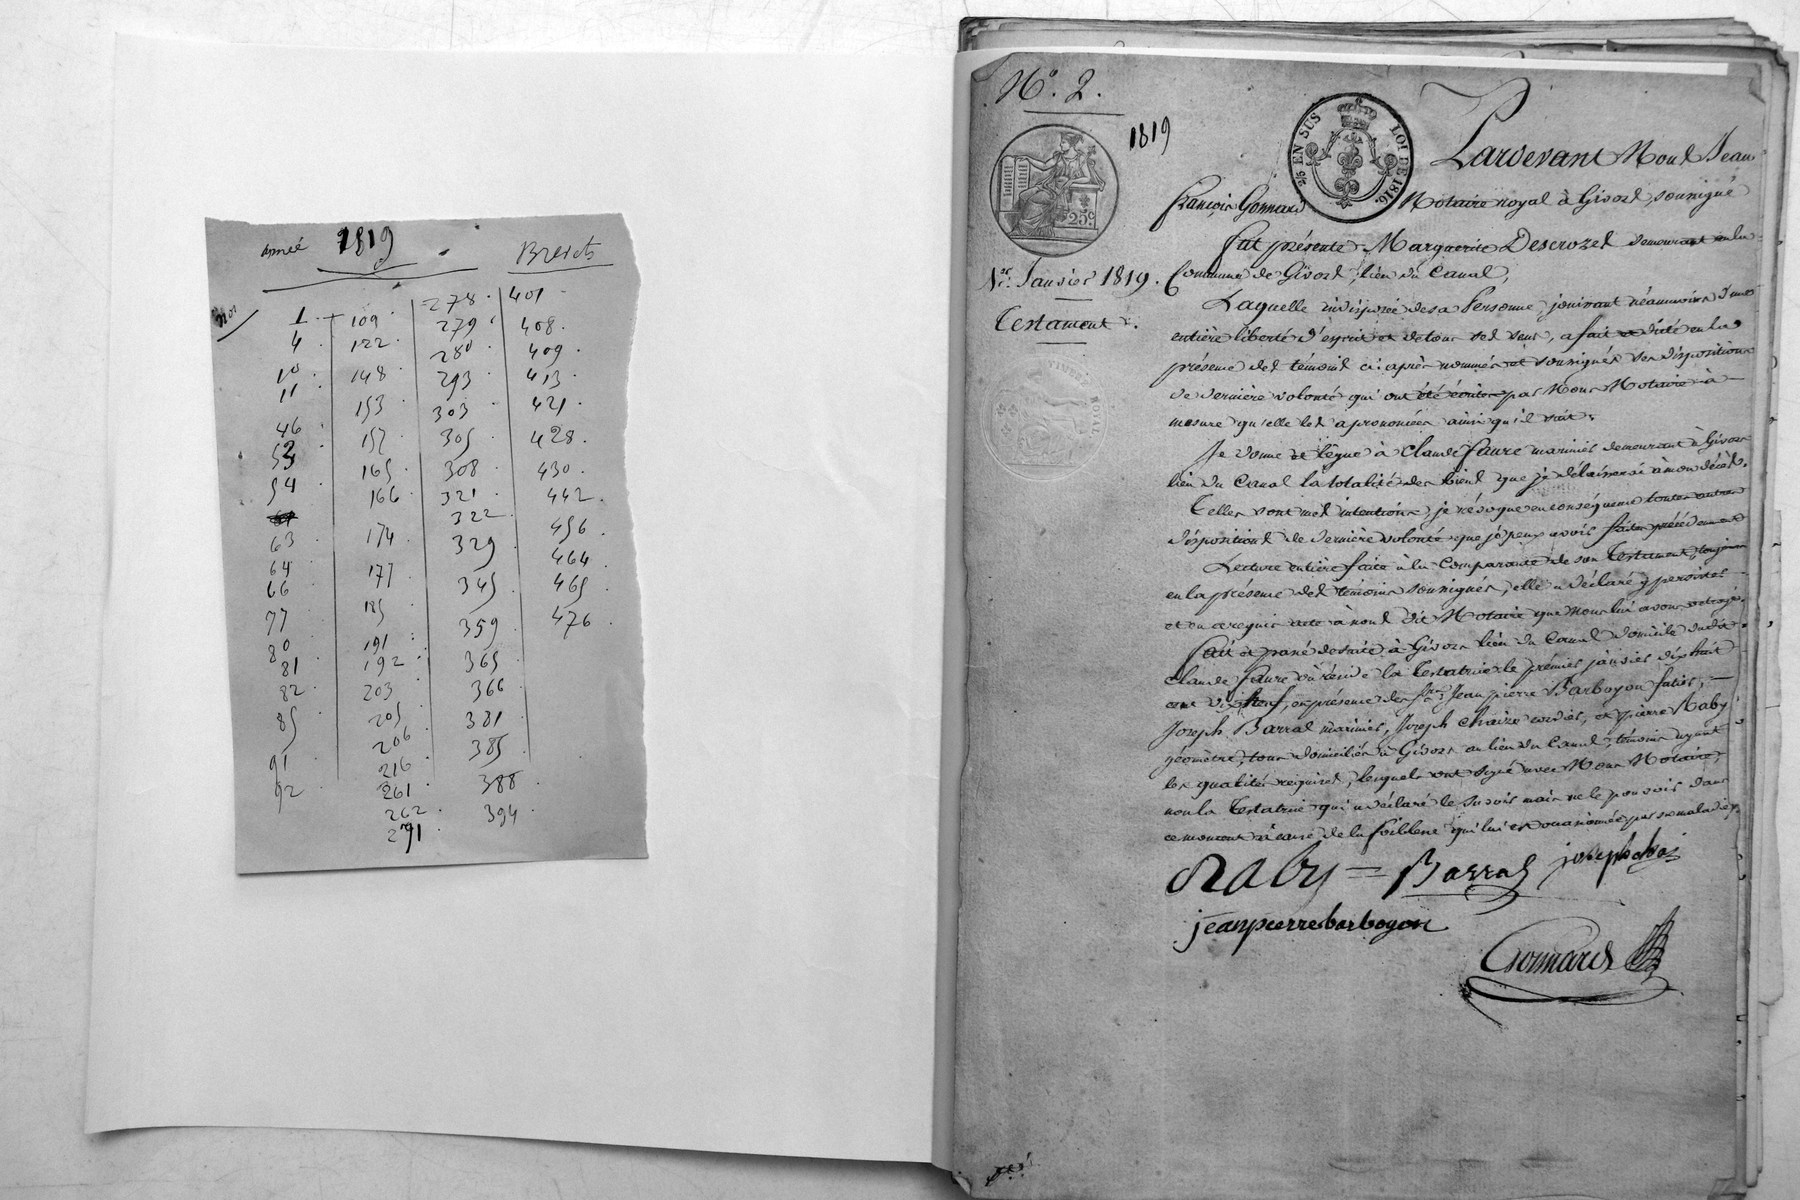 année 1819 Brevets
Nos
1
4
10
11
46
52
53
54
63
64
66
77
80
81
82
85
91
92
109
122
148
153
157
165
166
174
177
185
191
192
203
205
206
216
261
262
271
278
279
280
293
303
305
308
321
322
329
345
359
365
366
381
385
388
394
401
408
409
413
421
428
430
442
456
464
465
476
N.° 2.
1819
25c
EN SUS LOI DE 1816
TIMBRE ROYAL
1.er Janvier 1819.
Testament.
Pardevant Nous Jean
François Gonnard Notaire royal à Givors, soussigné
fut présente Marguerite Descrozes demeurant en la
Commune de Givors, lieu du Canal,
Laquelle indisposée de sa Personne, jouissant néanmoins d'une
entière liberté d'esprit et de tous ses sens, a fait et dicté en la
présence des témoins ci-après nommés et soussignés ses dispositions
de dernière volonté qui ont été écrites par Nous Notaire à
mesure qu'elle les a prononcées ainsi qu'il suit:
Je donne et lègue à Claude Faure marinier demeurant à Givors
lieu du Canal la totalité des biens que je délaisserai à mon décès.
Telles sont mes intentions, je révoque en conséquence toutes autres
dispositions de dernière volonté que je peux avoir faites précédemment
Lecture entière faite à la Comparante de son testament, toujours
en la présence des témoins soussignés, elle a déclaré y persister
et en a requis acte à nous dit Notaire que nous lui avons octroyé.
Fait et passé de suite à Givors lieu du Canal domicile dudit
Claude Faure où réside la Testatrice le premier janvier dix huit
cent dix neuf, en présence des Srs Jean pierre Barboyon
Joseph Barral marinier, Joseph cordier, et pierre Raby
géomètre, tous domiciliés à Givors au lieu du Canal, témoins ayant
les qualités requises, lesquels ont signé avec Nous Notaire,
non la Testatrice qui a déclaré le savoir mais ne le pouvoir dans
ce moment à cause de la foiblesse qui lui est occasionnée par sa maladie.
Raby = Barral joseph
jeanpierrebarboyon
Gonnard